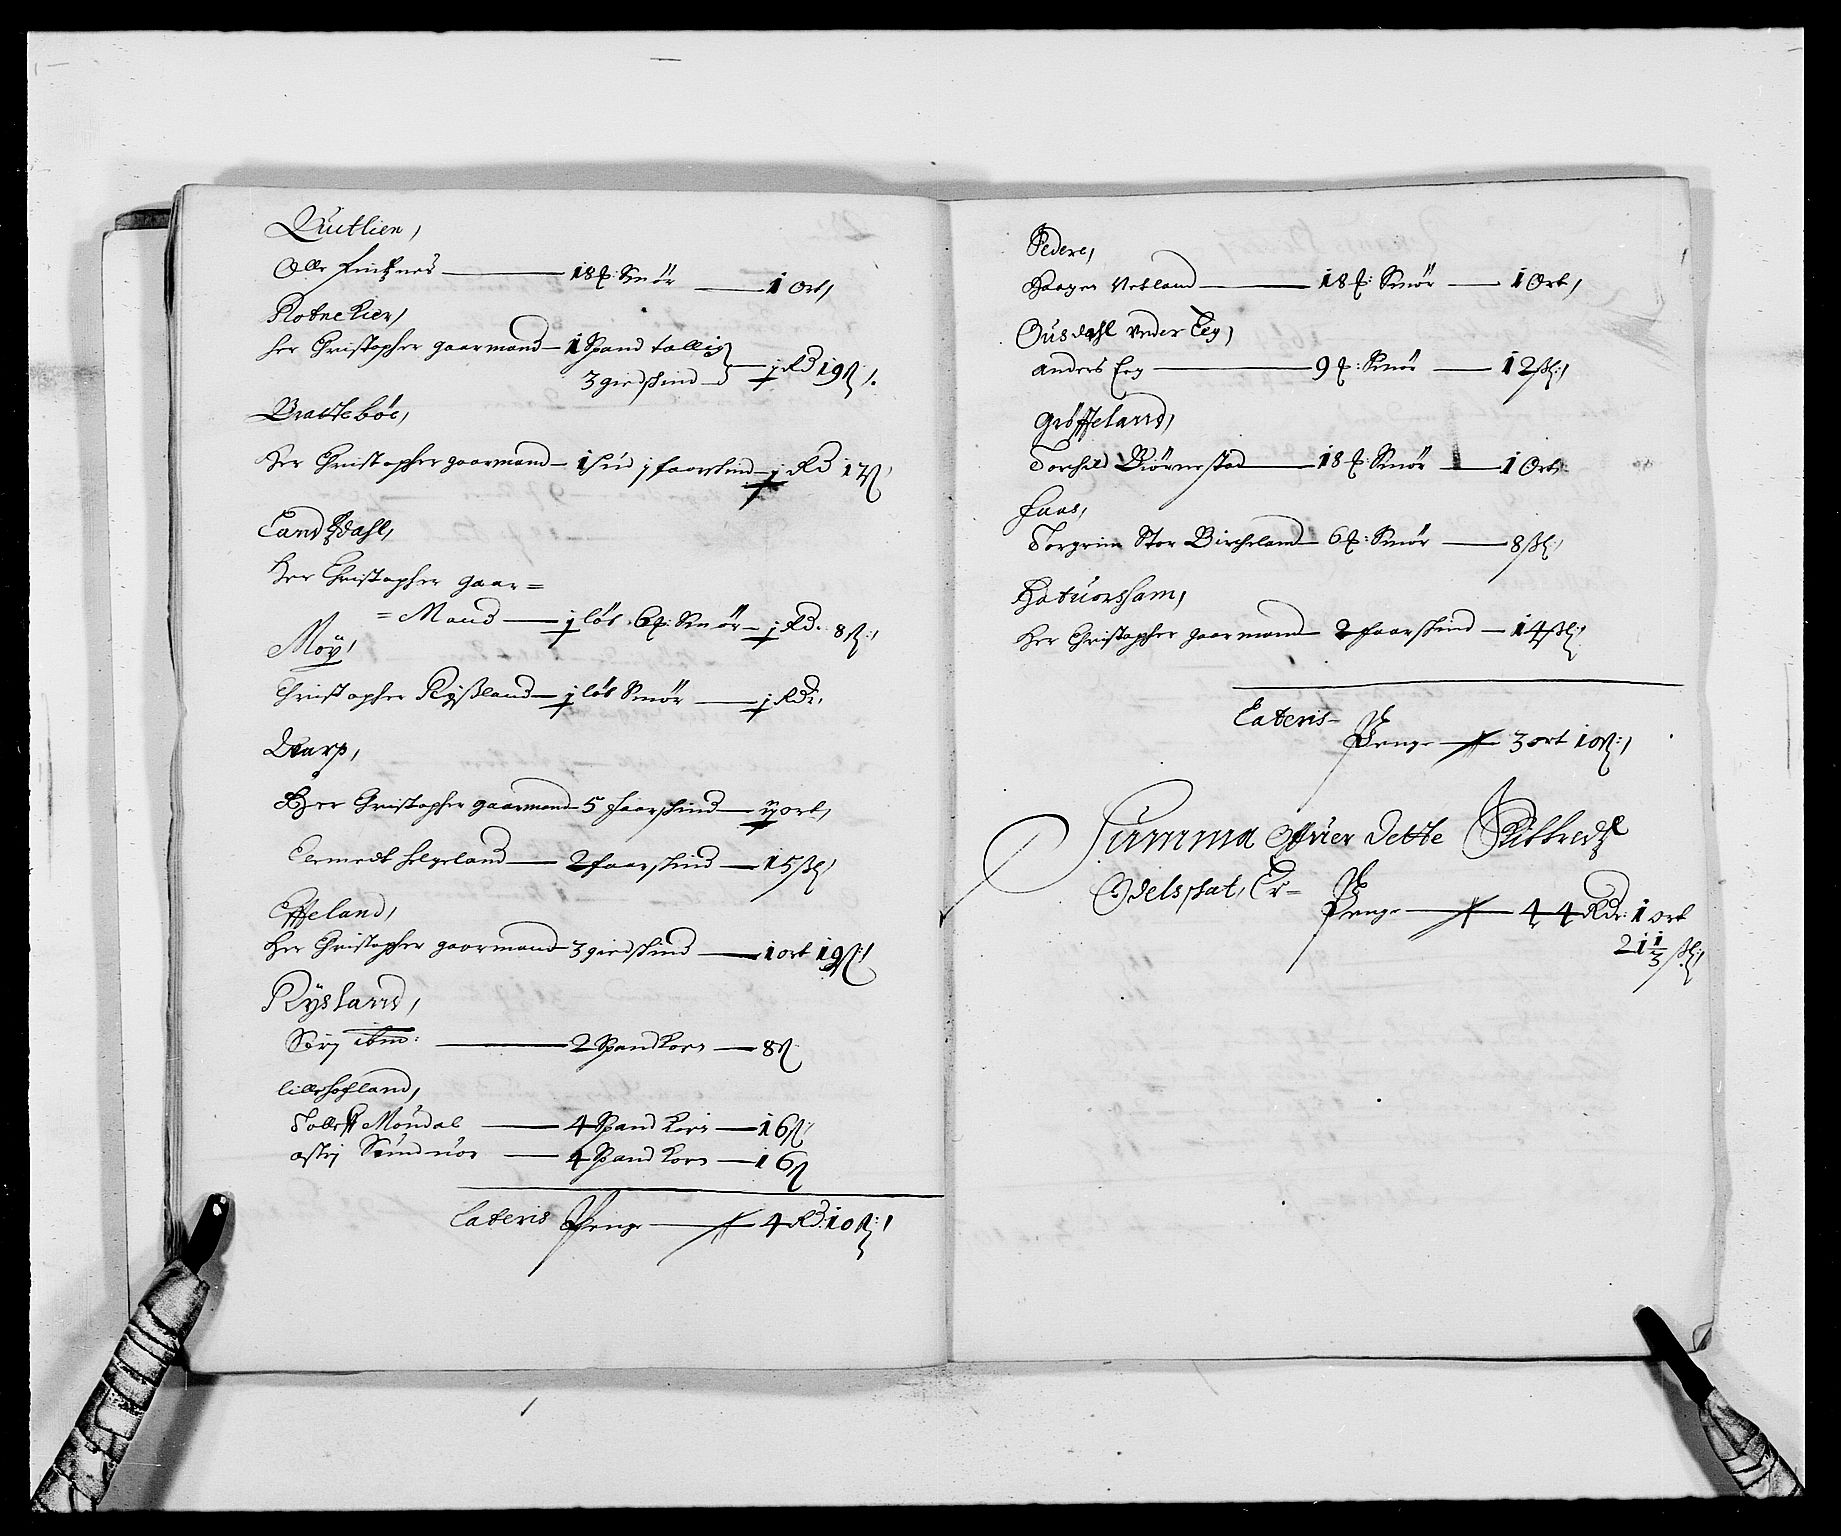 Quitlien,
Olle fintznes — 18 ℔: Smör — 1 Ort,
Rotnekier,
her Christopher gaarmand — 1 Spand tallig
3 giedskind — j Rd 19ß.
Brattebøe,
Her Christopher gaarmand — 1 hud j faarskind — j Rd 17ß
Landtzdahl,
Her Christopher gaar=
=Mand — j løb 6 ℔: Smör — j Rd. 8ß:
Møy,
Christopher Rÿsland — j løb Smör — j Rd:,
Dvarp,
Her Christopher gaarmand 5 faarskind — ij ort,
Lermedt helgeland — 2 faarskind — 15ß
Effeland,
Her Christopher gaarmand 3 giedskind — 1 ort 19ß:
Rÿsland,
Siri ibm: — 2 Spand korn — 8ß
lillehofland,
Tolleff Møndal — 4 Spand korn — 16ß
astrj Sundnör — 4 Spand korn — 16ß
Lateris Penge — 4 Rd: 10ß:
Pedere,
Haagen Netland — 18 ℔: Smör — 1 Ort,
Ousdahl vnder Eeg,
anders Eeg — 9 ℔: Smör — 12ß:
Grøffeland,
Torchild Biørnestad — 18 ℔: Smör — 1 Ort
faas,
Torgrim Stor Bircheland 6 ℔: Smör — 8ß:
Hatuorsham,
Her Christopher gaarmand 2 faarskind — 14ß:
Lateris
Penge — 3 ort 10ß:,
Summa Offuer dette
Odelsskat, Er
Penge — 44 Rdr: 1 ort
21 1/3 ß: